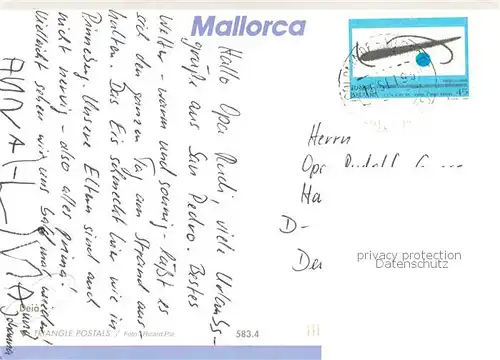 Mallorca
Hallo Opa Rudi, viele Urlaubs-
grüße aus San Pedro. Bestes
Wetter - warm und sonnig - läßt es
sich den ganzen Tag am Strand aus-
halten. Das Eis schmeckt hier wie in
Pinneberg. Unsere Eltern sind auch
nicht nervig - also alles prima!
Vielleicht sehen wir uns bald mal wieder!
ANNA-LINA
und
Johanna
Herrn
Opa Rudolf
Ha
D-
Der
privacy protection
Datenschutz
45
Deià
TRIANGLE POSTALS / Foto: Ricard Pla
583.4